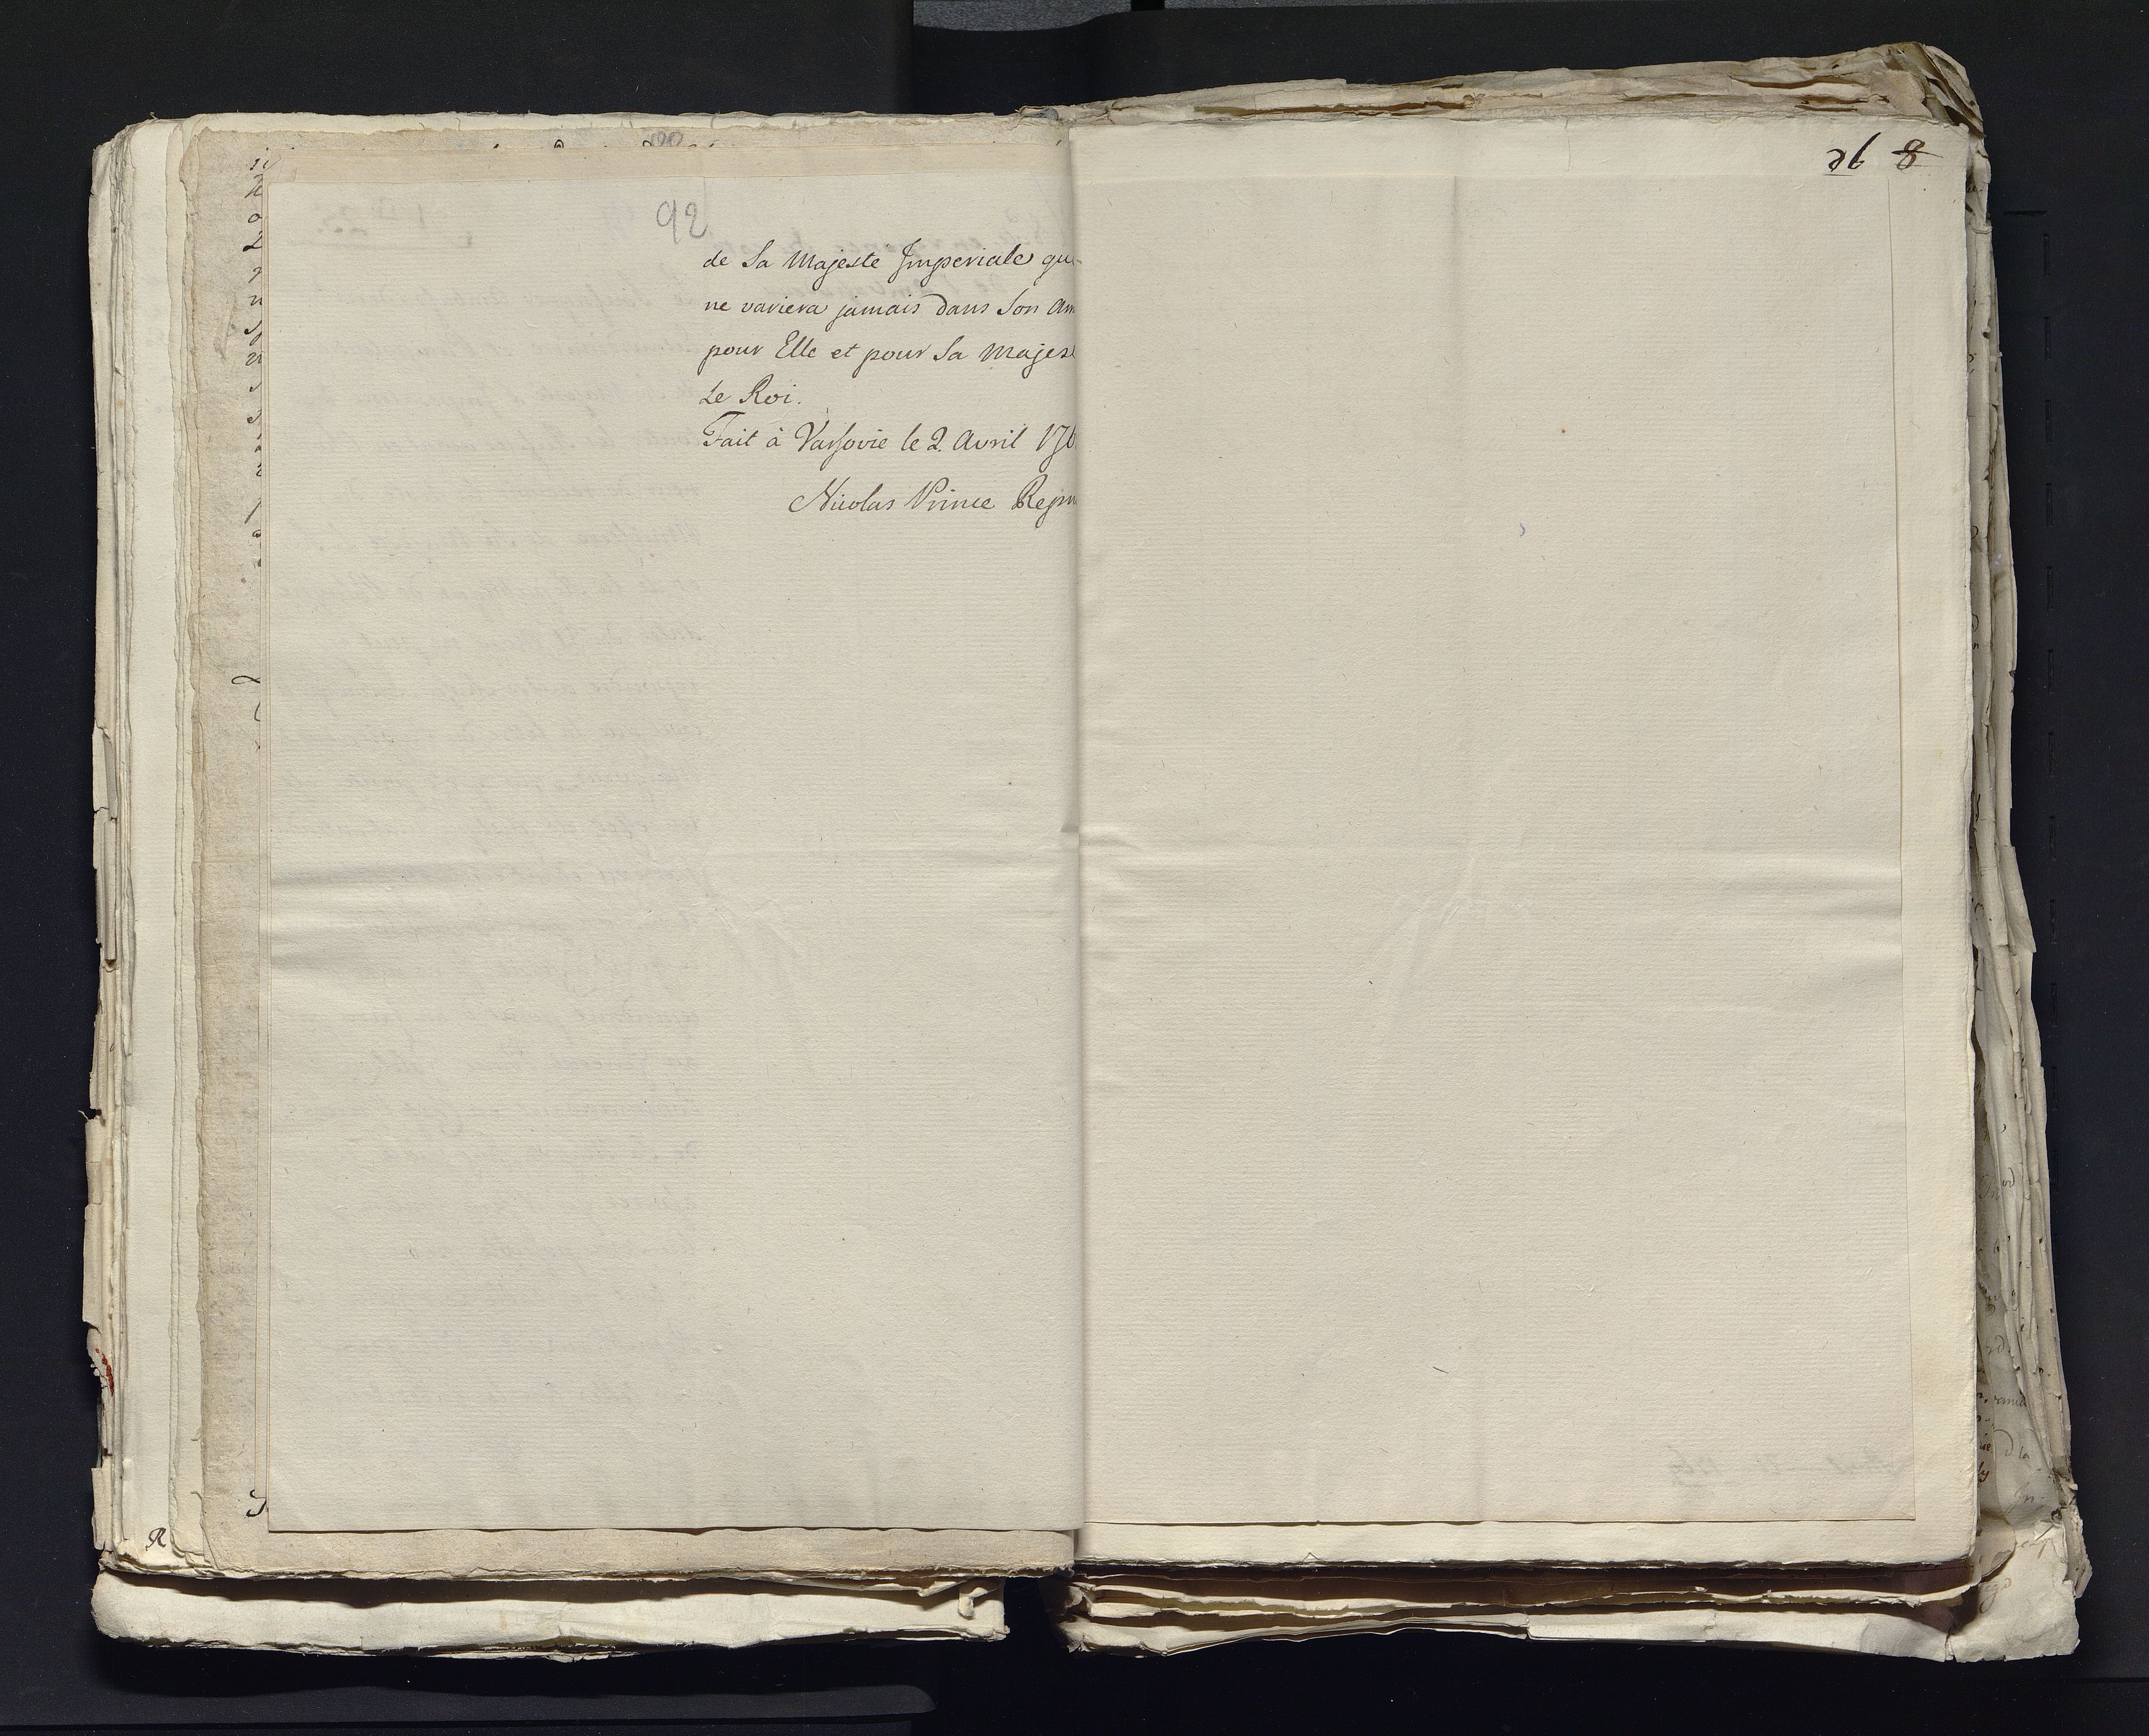 92
de Sa Majeste Imperiale qui
ne variera jamais dans Son am
pour Elle et pour Sa Majest
Le Roi.
Fait à Varsovie le 2. Avril 176
Nicolas Prince Repn
26 8
R